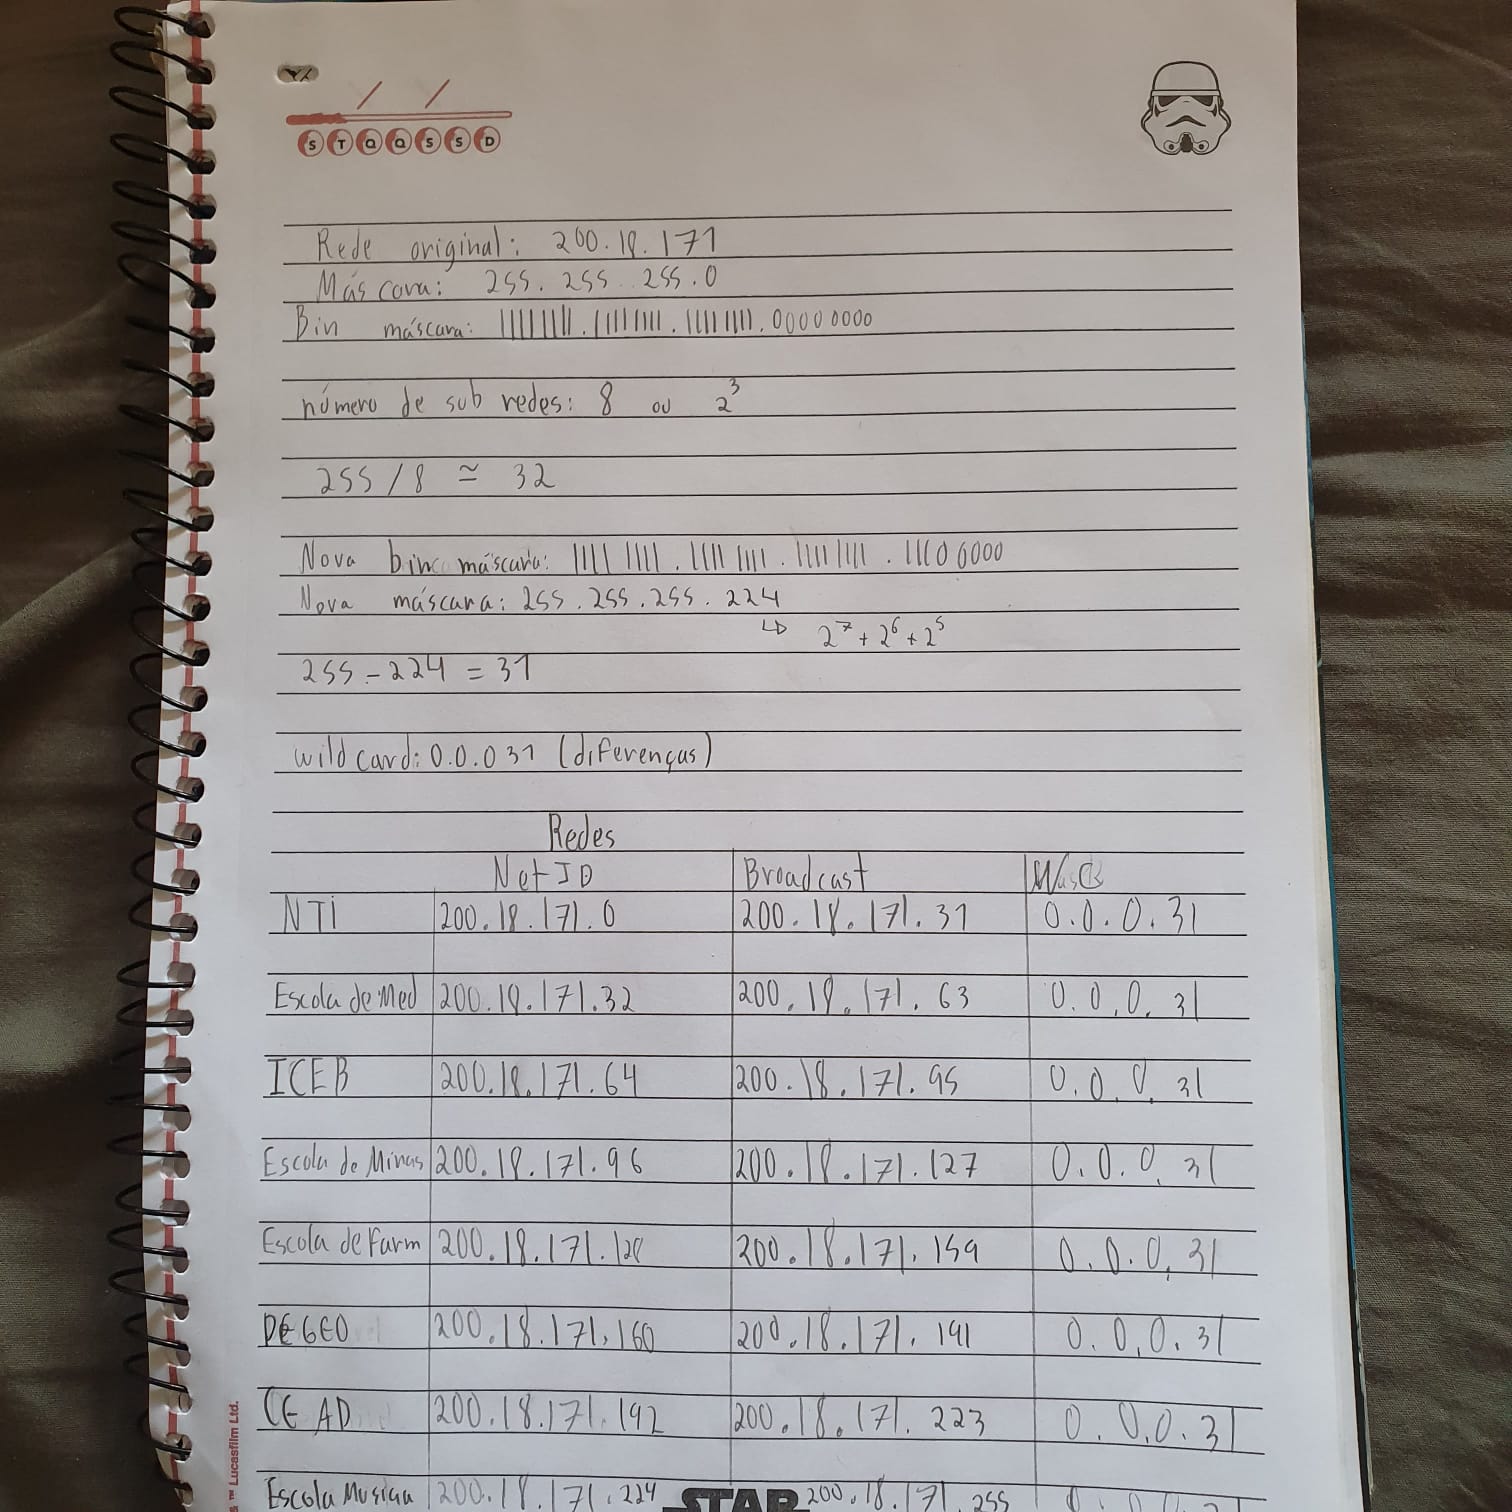 S T Q Q S S D
Rede original: 200.18.171
Máscara: 255.255.255.0
Bin máscara: 11111111.11111111.11111111.00000000
número de sub redes: 8 ou 2³
255/8 ≃ 32
Nova bin máscara: 11111111.11111111.11111111.11100000
Nova máscara: 255.255.255.224
↳ 2⁷+2⁶+2⁵
255-224 = 31
wild card: 0.0.031 (diferenças)
Redes
Net ID Broadcast
NTI 200.18.171.0 200.18.171.31 0.0.0.31
Escola de Med 200.18.171.32 200.18.171.63 0.0.0.31
ICEB 200.18.171.64 200.18.171.95 0.0.0.31
Escola de Minas 200.18.171.96 200.18.171.127 0.0.0.31
Escola de Farm 200.18.171.128 200.18.171.159 0.0.0.31
DEGEO 200.18.171.160 200.18.171.191 0.0.0.31
CEAD 200.18.171.192 200.18.171.223 0.0.0.31
Escola Musica 200.18.171.224 200.18.171.255
STAR
& ™ Lucasfilm Ltd.